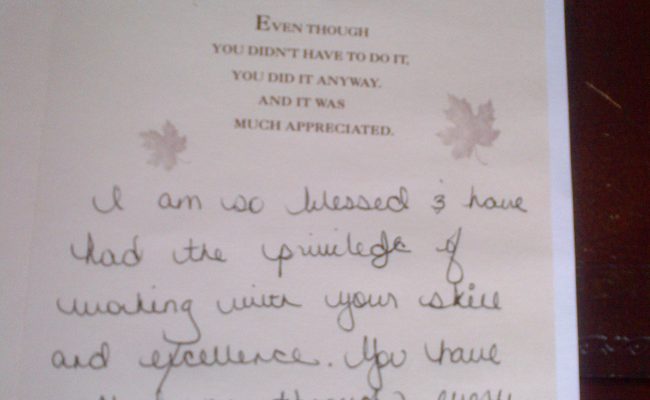 EVEN THOUGH
YOU DIDN'T HAVE TO DO IT,
YOU DID IT ANYWAY.
AND IT WAS
MUCH APPRECIATED.
I am so blessed & have
had the priviledge of
working with your skill
and excellence. You have